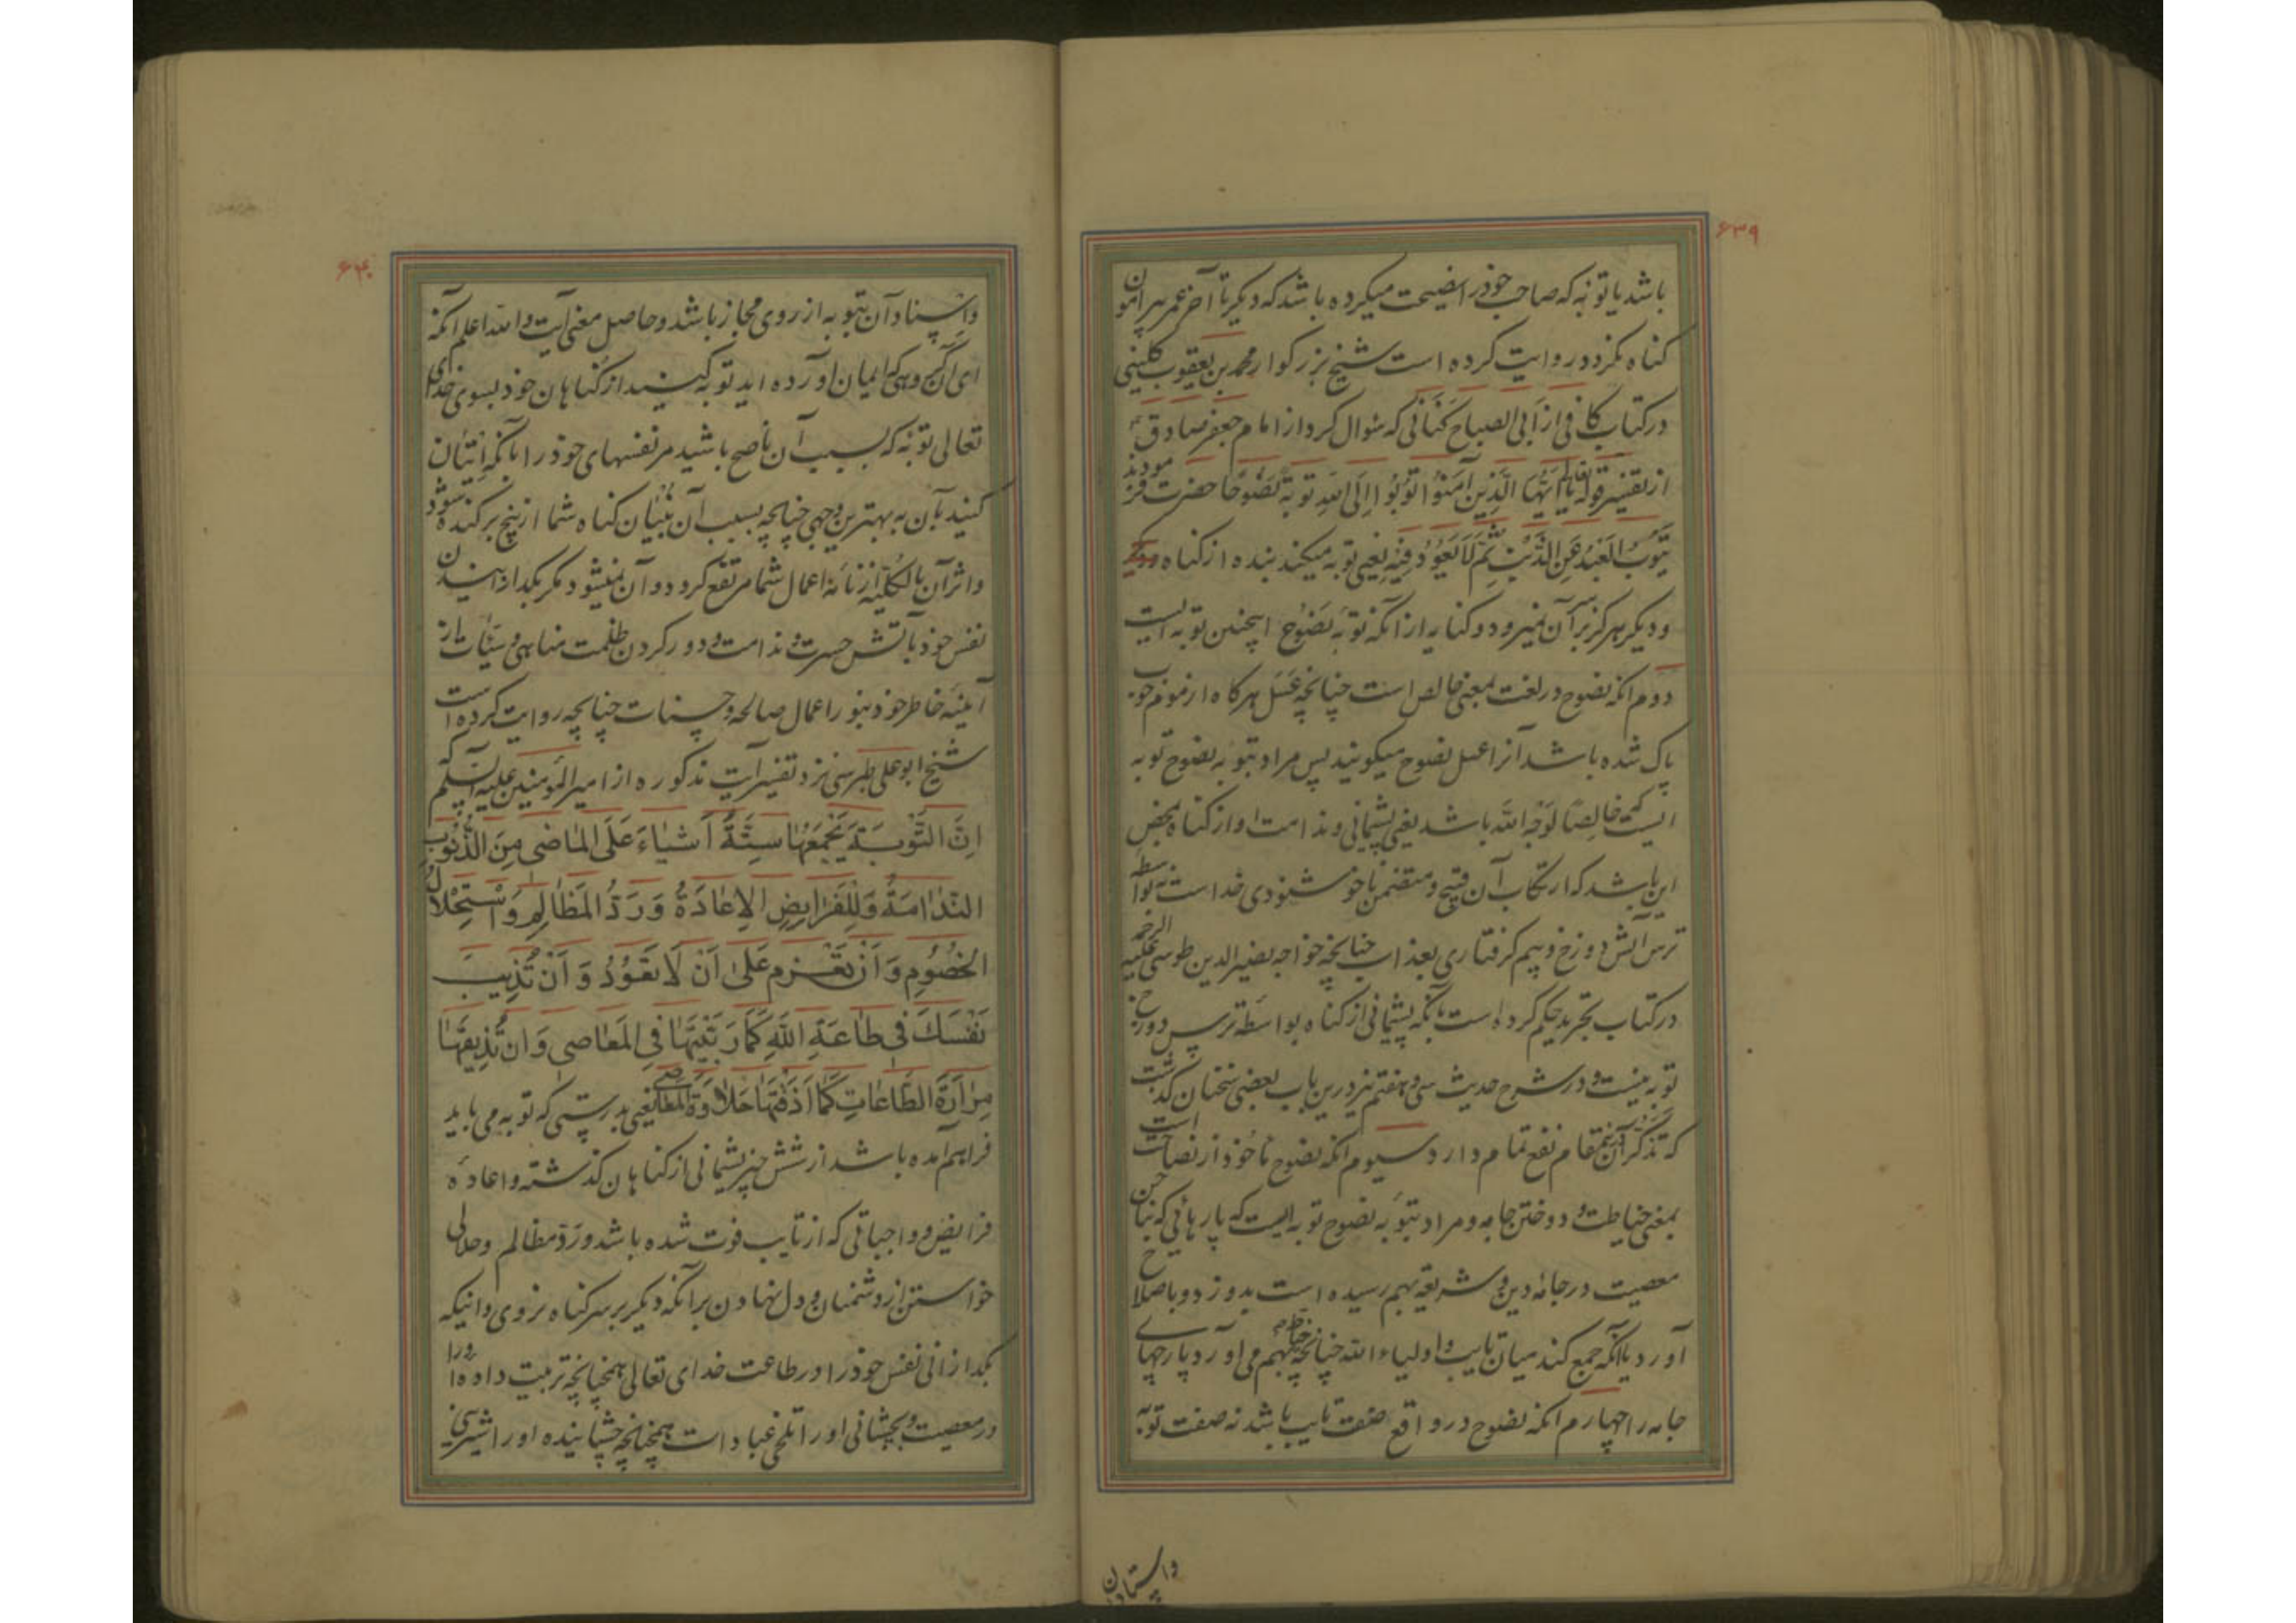 ۶۳۹
باشد یا توبه که صاحب خود را نصیحت میکرده باشد که دیگر تا آخر عمر پیرامون
کناه نکردد روایت کرده است شیخ بزرکوار محمد بن یعقوب کلینی
در کتاب کافی از ابی الصباح کنانی که سئوال کرد از امام جعفر صادق ع
از تفسیر قوله تعالی یا اَیُّهَا الَّذینَ آمَنُوا تُوبُوا اِلَی اللهِ تَوبةً نَصُوحًا حضرت فرمودند
یَتُوبُ العَبْدُ عَنِ الذَّنْبِ ثُمَّ لَا یَعُودُ فِیْهِ یعنی توبه میکند بنده از کناه
و دیگر هرکز بر سر آن نمیرود و کنایه از آنکه توبه نَصُوح اینچنین توبه ایست
دوم انکه نصوح در لغت بمعنی خالص است چنانچه عَسَل هرکاه از موم خوب
پاک شده باشد آنرا عسل نصوح میکویند پس مراد بتوبه نصوح توبه
ایست که خالِصًا لوَجْهِ اللّه باشد یعنی پشیمانی و ندامت او از کناه محض
این باشد که ارتکاب آن قبیح و متضمن ناخوشنودی خداست نه بواسطه
ترس آتش دوزخ و بیم کرفتاری بعذاب چنانچه خواجه نصیر الدین طوسی علیه الرحمه
در کتاب تجرید حکم کرده است بآنکه پشیمانی از کناه بواسَطه ترس دوزخ
توبه نیست و در شرح حدیث سی و هفتم نیز درین باب بعضی سخنان کذشت
که تذکّر آن درینمقام نفع تمام دارد سیوم انکه نصوح مأخوذ از نصاحت است
بمعنی خیاطت و دوختن جامه و مراد بتوبه نصوح توبه ایست که پارهائی که بناخن
معصیت در جامهٔ دین و شریعة بهم رسیده است بدوزد و باصلاح
آورد یا آنکه جمع کند میان تایب و اولیاء الله چنانچه خیاط بهم می آورد پارچهای
جامه را چهارم انکه نصوح در واقع صفت تایب باشد نه صفت توبه
واسناد آن
۶۴۰
واسناد آن بتوبه از روی مجاز باشد و حاصل معنی آیت والله اعلم آنکه
ای آن کروهی که ایمان آورده اید توبه کنید از کناهان خود بسوی خدای
تعالی توبهٔ که بسبب آن ناصح باشید مر نفسهای خود را بآنکه اِتیان
کنید بآن به بهترین وجهی چنانچه بسبب آن بُنیان کناه شما از بیخ برکنده شود
و اثر آن بالکلّیه از نامهٔ اعمال شما مرتفع کردد و آن نمیشود مکر بکدازانیدن
نفس خود بآتش حسرت و ندامت و دور کردن ظلمت مناهی و سَیّئات از
آیینهٔ خاطر خود بنور اعمال صالحه و حسنات چنانچه روایت کرده است
شیخ ابو علی طبرسی نزد تفسیر آیت مذکوره از امیر المؤمنین علیه السلم که
اِنَّ التَّوْبَةَ یَجْمَعُهَا سِتَّةُ اَشْیاءَ عَلَی المٰاضی مِنَ الذُّنُوبِ
النَّدٰامَةُ وَلِلْفَرٰایِضِ الاِعٰادَةُ وَ رَدُّ المَظٰالِمِ وَاسْتِحْلالُ
الخُصُومِ وَ اَنْ تَعْزِمَ عَلیٰ اَنْ لَا تَعُوْدَ وَ اَنْ تُذِیبَ
نَفْسَكَ فی طٰاعَةِ اللّهِ کَمَا رَبَّیْتَهَا فِی المَعٰاصی وَ ان تُذِیقَهٰا
مَرٰارَةَ الطّٰاعٰاتِ کَمٰا اَذَقْتَهٰا حَلاٰوَةَ المَعٰاصی یعنی بدرستی که توبه می باید
فراهم آمده باشد از شش چیز پشیمانی از کناهان کذشته و اعادهٔ
فرایض و واجباتی که از تایب فوت شده باشد و رَدّ مظالم و حلالی
خواستن از دشمنان و دل نهادن بر آنکه دیکر بر سر کناه نروی و انیکه
بکدازانی نفس خود را در طاعت خدای تعالی همچنانچه تربیت داده او را
در معصیت و بچشانی او را تلخی عبادات همچنانچه چشانیده او را شیرینی